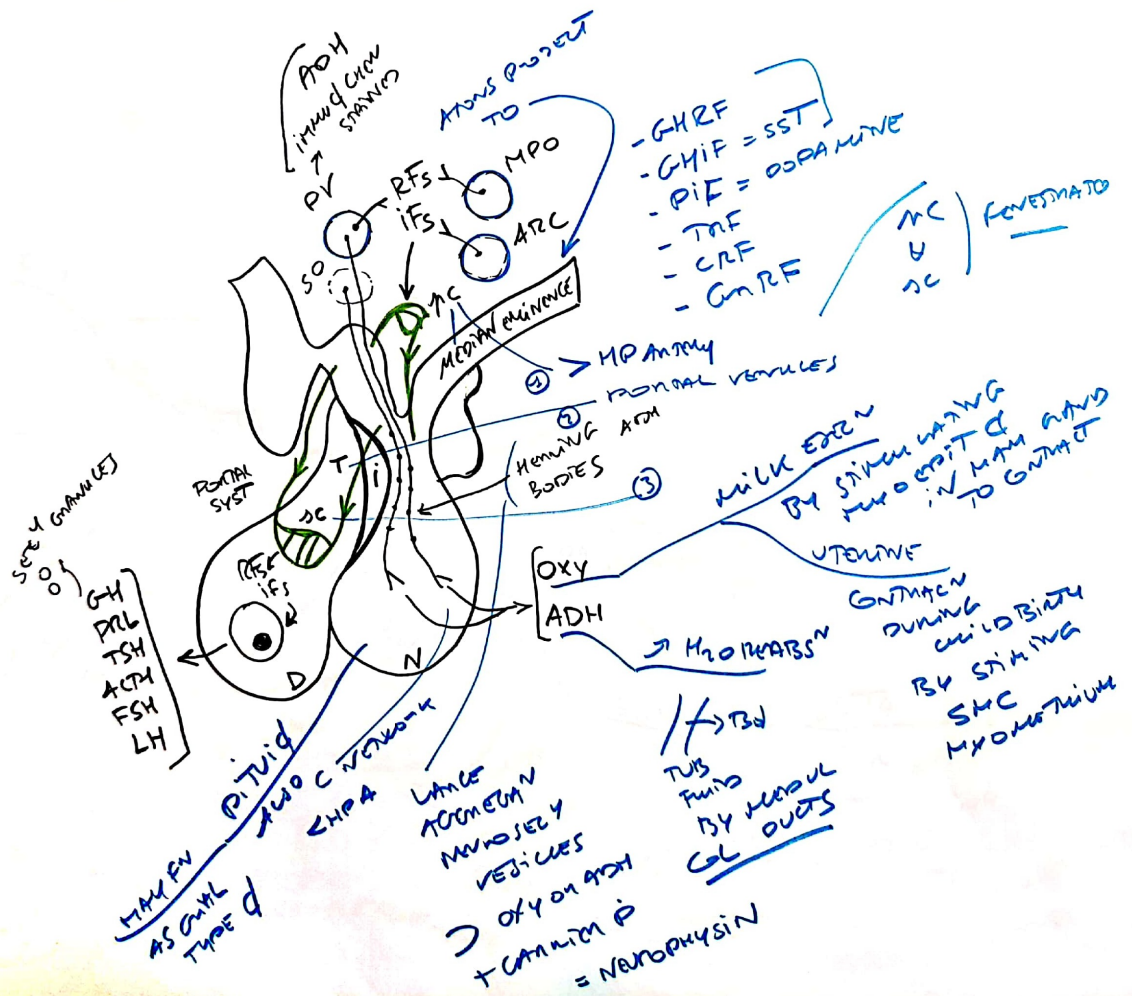 ADH
IMMUNO
STAINED
PV
SO
RFs
iFs
MPO
ARC
AXONS PROJECT
TO
- GHRF
- GHiF = SST
- PiF = DOPAMINE
- TRF
- CRF
- GnRF
1°C
↓
2°C
FENESTRATED
1°C
MEDIAN EMINENCE
① > HP ARTERY
② PORTAL VENULES
HERRING
BODIES
ADH
③
PORTAL
SYST
T
i
2°C
RFs
iFs
D
N
SECRY GRANULES
GH
PRL
TSH
ACTH
FSH
LH
OXY
ADH
MILK EJECN
BY STIMULATING
MYOEPIT ₵
IN MAM GLAND
TO CONTRACT
UTERINE
CONTRACN
DURING
CHILDBIRTH
BY STIMING
SMC
MYOMETRIUM
↗ H2O REABSN
→ Bd
TUB
FLUID
BY MEDUL
COL DUCTS
PITUI ₵
MAY FN
AS GLIAL
TYPE ₵
ALSO C NETWORK
< HPA
LARGE
AGGREGAN
NEUROSECY
VESICLES
⊃ OXY OR ADH
+ CARRIER P
= NEUROPHYSIN